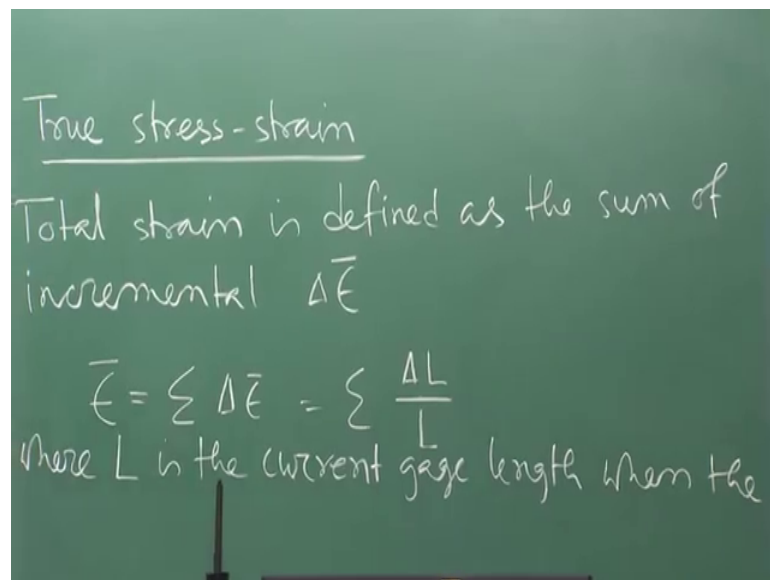 True stress-strain
Total strain is defined as the sum of
incremental Δε̄
ε̄ = Σ Δε̄ = Σ ΔL/L
where L is the current gage length when the